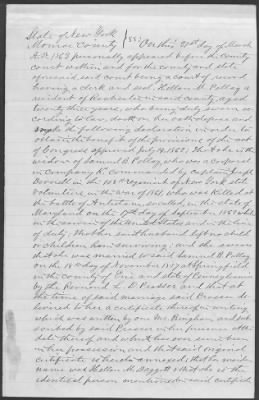 State of New York
Monroe County } SS: On this 21st day of March
A.D. 1863 personally appeared before the county
court within and for the county and state
aforesaid said court being a court of record
having a clerk and seal, Hellen M. Pollay a
resident of Rochester in said county, aged
twenty three years, who being duly sworn ac
cording to law, doth on her oath depose and
the following declaration in order to
obtain the benefit of the provisions of the act
of Congress approved July 14, 1862. That she is the
widow of Samuel B. Pollay, who was a corporal
in Company K, commanded by captain
in the 108th regiment of New York state
volunteers in the war of 1861 who was killed at
the battle of Antietam, so called, in the state of
Maryland on the 17th day of September 1862 while
in the service of the United States and in the line
of duty, that her said husband left no child
or children him surviving; and she swears
that she was married to said Samuel B. Pollay
on the day of November 1857 at Springfield
in the county of Erie and state of Pennsylvania
by the Reverend L. D. Prosser and that at
the time of said marriage said Prosser de
livered to her a certificate thereof in writing
which was written by one Mr. Bingham, and sub
scribed by said Prosser in her presence at the
date thereof and which has ever since been
in her possession, and that said original
certificate is hereto annexed; that her maiden
name was Hellen M. Doggett & that she is the
identical person mentioned in said certificate